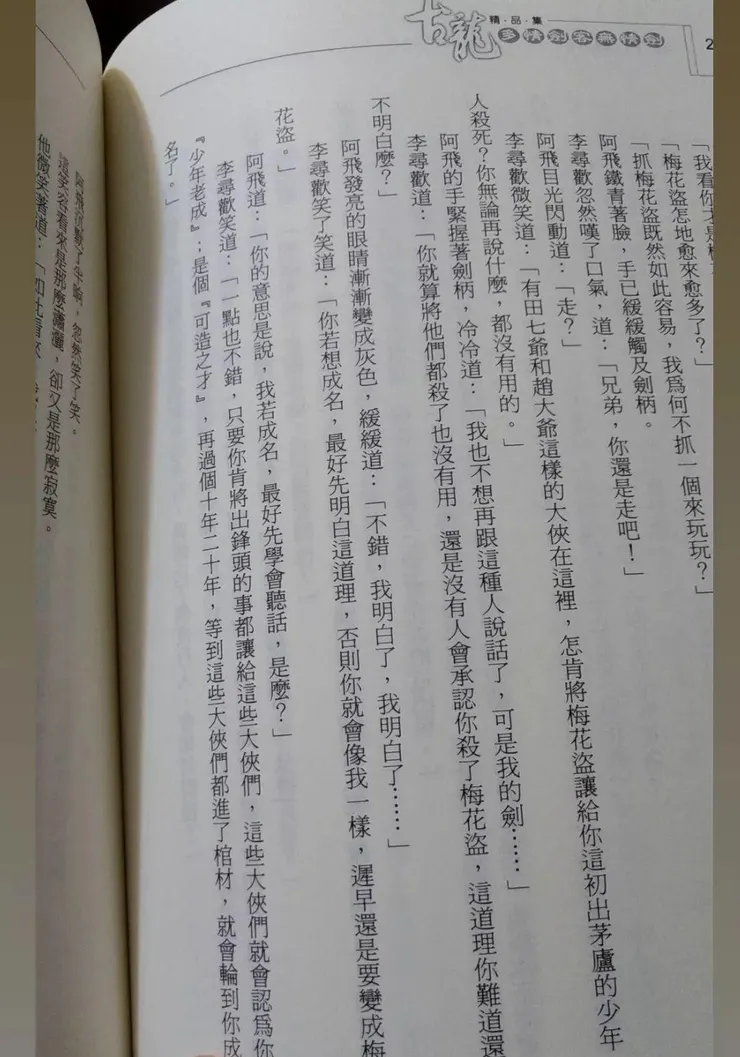 古龍
精・品・集
多情劍客無情劍
2
「我看你才是梅
「梅花盜怎地愈來愈多了？」
「抓梅花盜既然如此容易，我爲何不抓一個來玩玩？」
阿飛鐵青著臉，手已緩緩觸及劍柄。
李尋歡忽然嘆了口氣，道：「兄弟，你還是走吧！」
阿飛目光閃動道：「走？」
李尋歡微笑道：「有田七爺和趙大爺這樣的大俠在這裡，怎肯將梅花盜讓給你這初出茅廬的少年
人殺死？你無論再說什麼，都沒有用的。」
阿飛的手緊握著劍柄，冷冷道：「我也不想再跟這種人說話了，可是我的劍……」
李尋歡道：「你就算將他們都殺了也沒有用，還是沒有人會承認你殺了梅花盜，這道理你難道還
不明白麼？」
阿飛發亮的眼睛漸漸變成灰色，緩緩道：「不錯，我明白了，我明白了……」
李尋歡笑了笑道：「你若想成名，最好先明白這道理，否則你就會像我一樣，遲早還是要變成梅
花盜。」
阿飛道：「你的意思是說，我若成名，最好先學會聽話，是麼？」
李尋歡笑道：「一點也不錯，只要你肯將出鋒頭的事都讓給這些大俠們，這些大俠們就會認爲你
『少年老成』；是個『可造之才』，再過個十年二十年，等到這些大俠們都進了棺材，就會輪到你成
名了。」
阿飛沉默了半晌，忽然笑了笑。
這笑容看來是那麼瀟灑，卻又是那麼寂寞。
他微笑著道：「如此看來，我